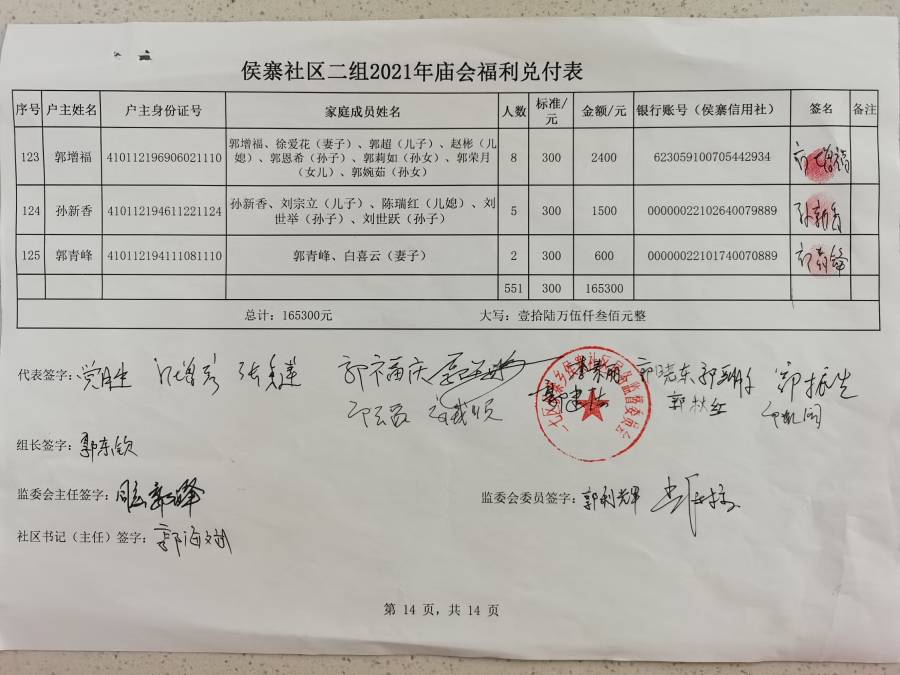 侯寨社区二组2021年庙会福利兑付表
序号 户主姓名 户主身份证号 家庭成员姓名 人数 标准/元 金额/元 银行账号（侯寨信用社） 签名 备注
123 郭增福 410112196906021110 郭增福、徐爱花（妻子）、郭超（儿子）、赵彬（儿媳）、郭恩希（孙子）、郭莉如（孙女）、郭荣月（女儿）、郭婉茹（孙女） 8 300 2400 623059100705442934 郭增福
124 孙新香 410112194611221124 孙新香、刘宗立（儿子）、陈瑞红（儿媳）、刘世举（孙子）、刘世跃（孙子） 5 300 1500 00000022102640079889 孙新香
125 郭青峰 410112194111081110 郭青峰、白喜云（妻子） 2 300 600 00000022101740070889 郭青峰
551 300 165300
总计：165300元 大写：壹拾陆万伍仟叁佰元整
代表签字： 郭福庆 郭晓东 郭振生
郭秋红
组长签字：郭东钦
监委会主任签字： 监委会委员签字：郭利光军
社区书记（主任）签字：郭海斌
第 14 页，共 14 页